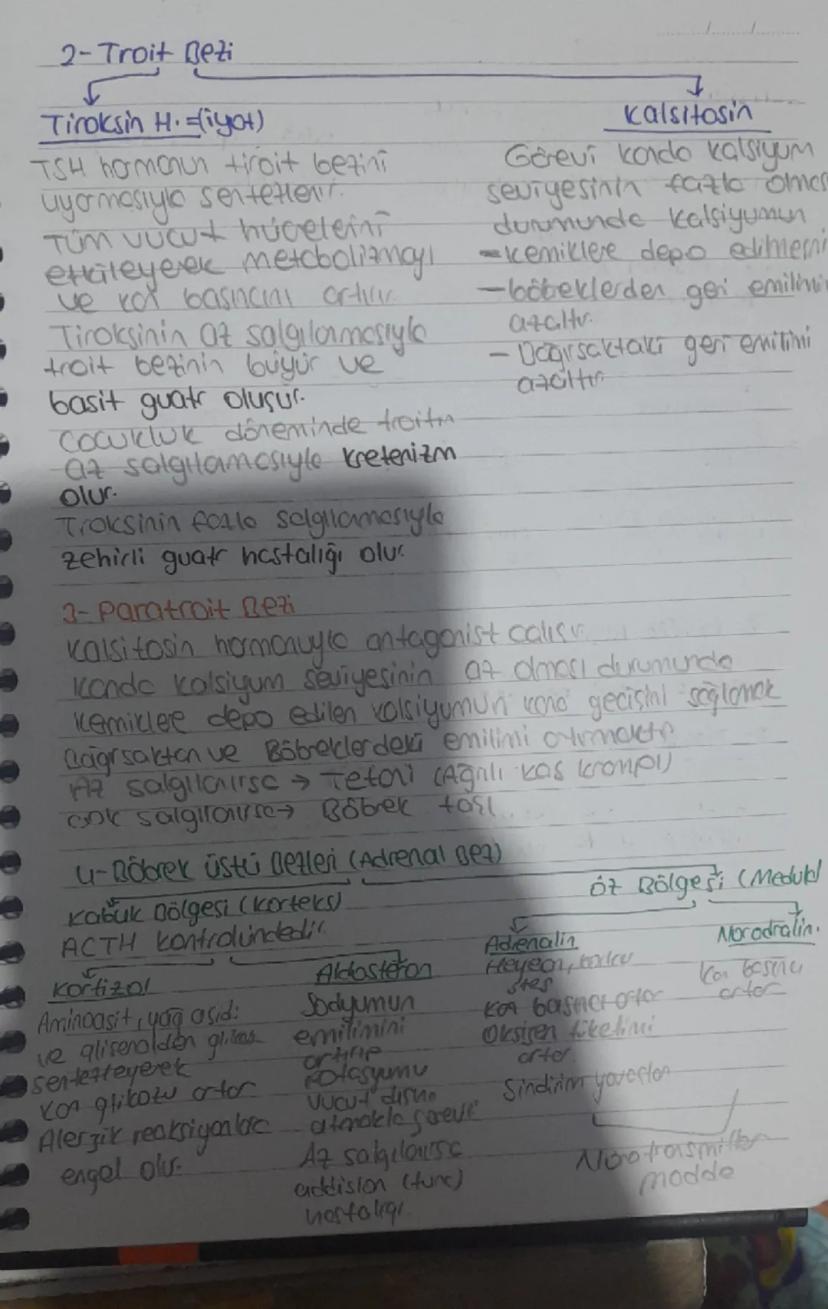 2- Troit Bezi
Tiroksin H. = (iyot)
TSH hormonun tiroit bezini
uyarmasıyla sentezlenir.
Tüm vücut hücrelerini
etkileyerek metabolizmayı
ve kan basıncını artırır.
Tiroksinin az salgılanmasıyla
troit bezinin büyür ve
basit guatr oluşur.
Çocukluk döneminde troitin
az salgılamasıyla kretenizm
olur.
Troksinin fazla salgılamasıyla
zehirli guatr hastalığı olur
Kalsitosin
Görevi kanda kalsiyum
seviyesinin fazla olması
durumunda kalsiyumun
- kemiklere depo edilmesini
- böbreklerden geri emilimi
azaltır.
- Bağırsaktaki geri emilimi
azaltır
3- Paratroit Bezi
Kalsitosin hormonuyla antagonist çalışır
Kanda kalsiyum seviyesinin az olması durumunda
kemiklere depo edilen kalsiyumun kana geçişini sağlamak
Bağırsaktan ve Böbreklerdeki emilimi artırmaktır
Az salgılanırsa → Tetoni (Ağrılı kas krampı)
çok salgılanırsa → Böbrek taşı
4- Böbrek üstü Bezleri (Adrenal Bez)
Kabuk Bölgesi (Korteks)
ACTH kontrolündedir.
Kortizol
Aminoasit, yağ asidi
ve gliserolden glikoz
sentezleyerek
Kan glikozu artar
Alerjik reaksiyonlara
engel olur.
Aldosteron
Sodyumun
emilimini
artırıp
Potasyumu
vücut dışına
atmakla görevli
Az salgılanırsa
addislon (tunç)
hastalığı
Öz Bölgesi (Medula)
Adrenalin
Heyecan, korku
stres
Kan basıncı artar
Oksijen tüketimi
artar
Sindirim yavaşlar
Noradralin.
Kan basıncı
artar
Norotrasmitter
madde